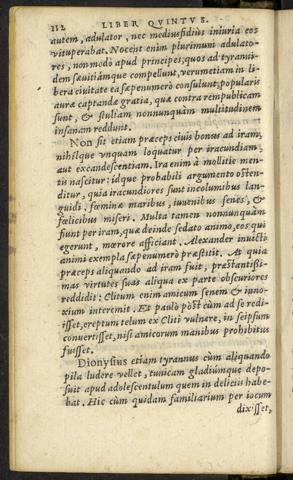 112 LIBER QVINTVS.
autem, adulator, nec mediusfidius iniuria eos
vituperabat. Nocent enim plurimùm adulato-
res, non modò apud principes, quos ad tyranni-
dem sæuitiámque compellunt, verumetiam in li-
bera ciuitate ea sæpenumerò consulunt, popularis
auræ captandæ gratia, quæ contra rempublicam
sunt, & stultam nonnunquàm multitudinem
insanam reddunt.
Non sit etiam præceps ciuis bonus ad iram,
nihilque vnquam loquatur per iracundiam,
aut excandescentiam. Ira enim à mollitie men-
tis nascitur: idque probabili argumento osten-
ditur, quia iracundiores sunt incolumibus lan-
guidi, fœminæ maribus, iuuenibus senes, &
fœlicibus miseri. Multa tamen nonnunquàm
fiunt per iram, quæ deinde sedato animo, eos qui
egerunt, mœrore afficiant. Alexander inuicti
animi exempla sæpenumerò præstitit. At quia
præceps aliquando ad iram fuit, præstantissi-
mas virtutes suas aliqua ex parte obscuriores
reddidit: Clitum enim amicum senem & inno-
xium interemit. Et paulò pòst cùm ad se redi-
isset, ereptum telum ex Cliti vulnere, in seipsum
conuertisset, nisi amicorum manibus prohibitus
fuisset.
Dionysius etiam tyrannus cùm aliquando
pila ludere vellet, tunicam gladiúmque depo-
suit apud adolescentulum quem in deliciis habe-
bat. Hic cùm quidam familiarium per iocum
dixisset,